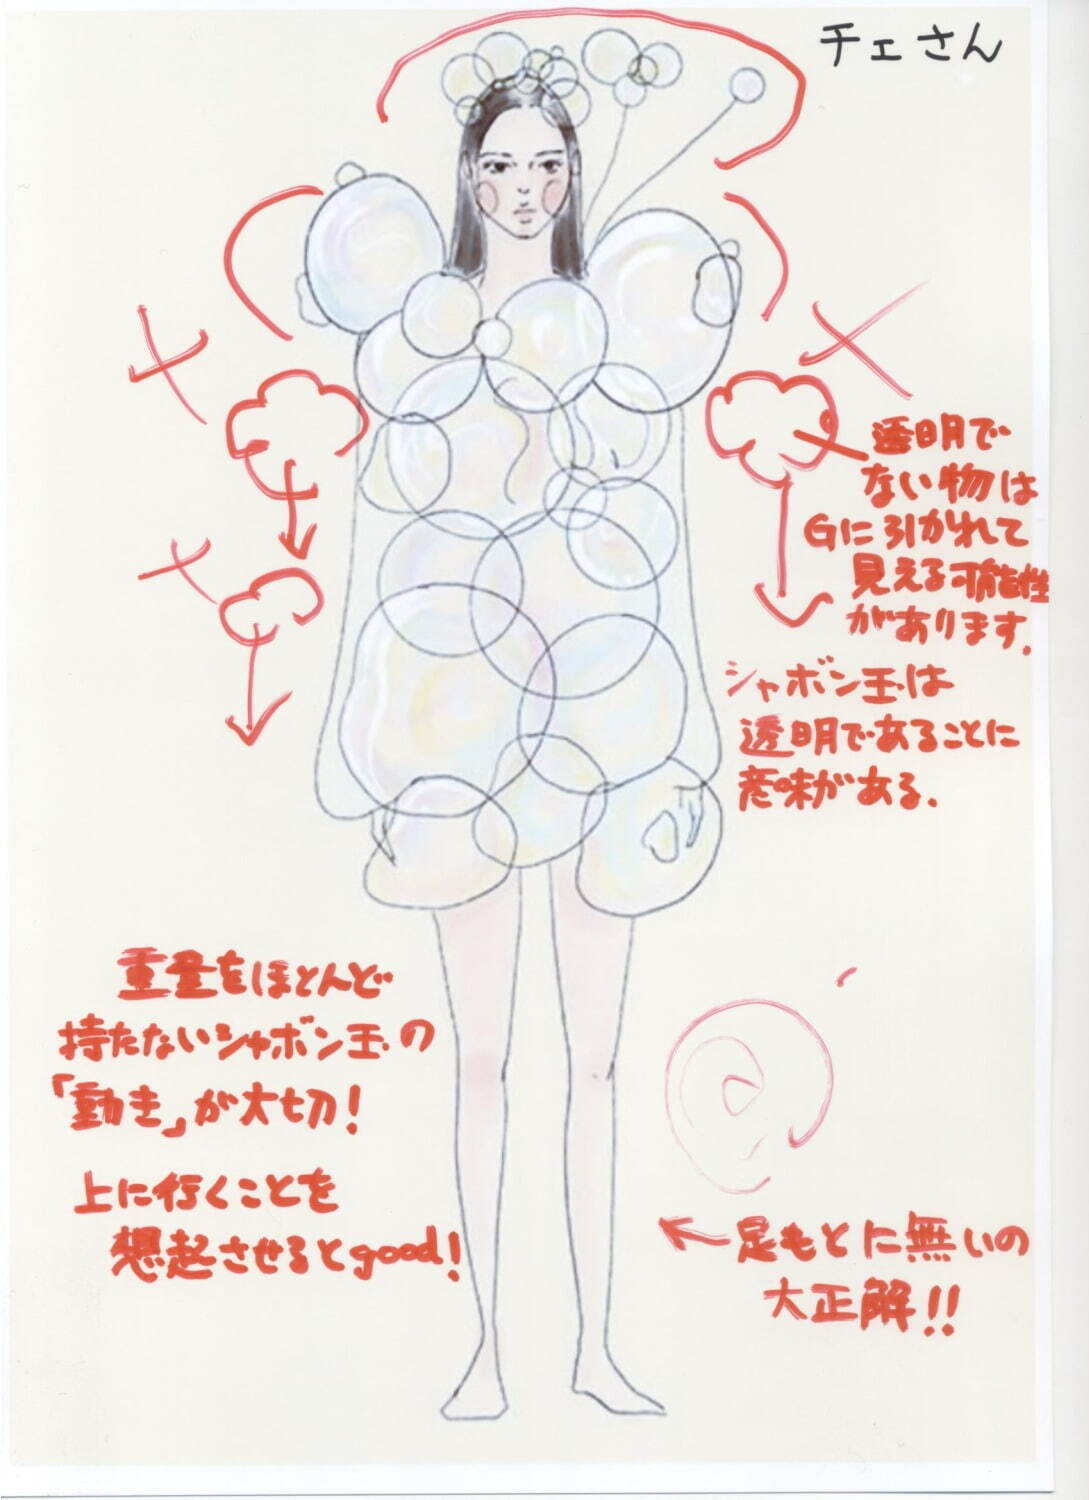 チェさん
透明で
ない物は
Gに引かれて
見える可能性
があります.
シャボン玉は
透明であることに
意味がある.
重量をほとんど
持たないシャボン玉の
「動き」が大切!
上に行くことを
想起させるとgood!
←足もとに無いの
大正解!!